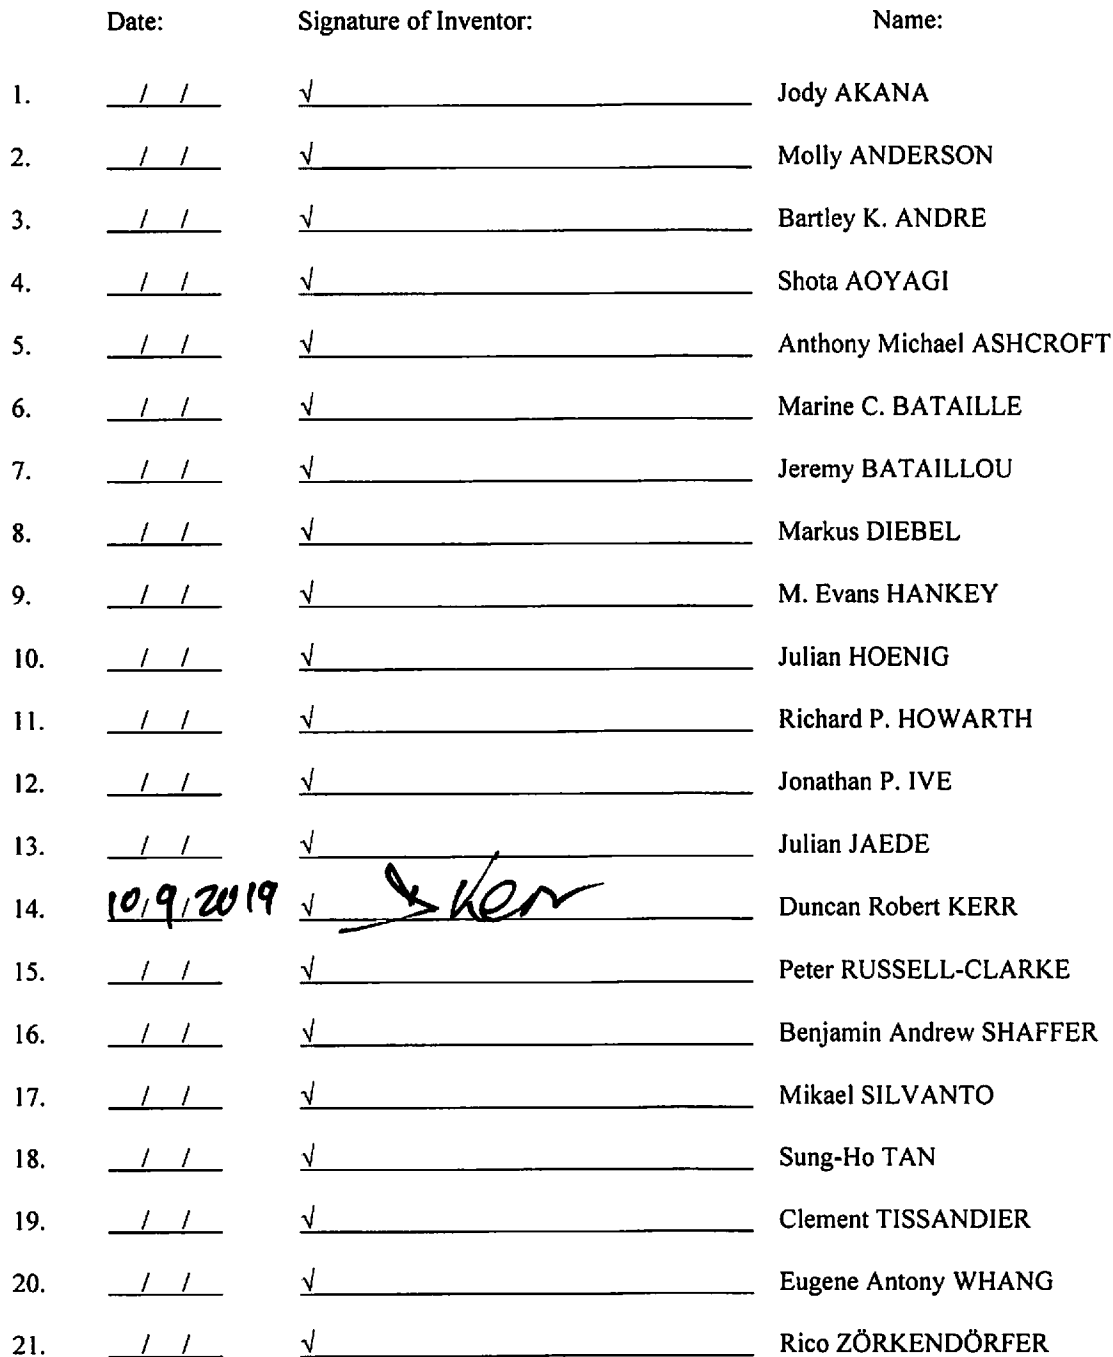 Date: Signature of Inventor: Name:
1. / / √ Jody AKANA
2. / / √ Molly ANDERSON
3. / / √ Bartley K. ANDRE
4. / / √ Shota AOYAGI
5. / / √ Anthony Michael ASHCROFT
6. / / √ Marine C. BATAILLE
7. / / √ Jeremy BATAILLOU
8. / / √ Markus DIEBEL
9. / / √ M. Evans HANKEY
10. / / √ Julian HOENIG
11. / / √ Richard P. HOWARTH
12. / / √ Jonathan P. IVE
13. / / √ Julian JAEDE
14. 10/9/2019 √ D Kerr Duncan Robert KERR
15. / / √ Peter RUSSELL-CLARKE
16. / / √ Benjamin Andrew SHAFFER
17. / / √ Mikael SILVANTO
18. / / √ Sung-Ho TAN
19. / / √ Clement TISSANDIER
20. / / √ Eugene Antony WHANG
21. / / √ Rico ZÖRKENDÖRFER